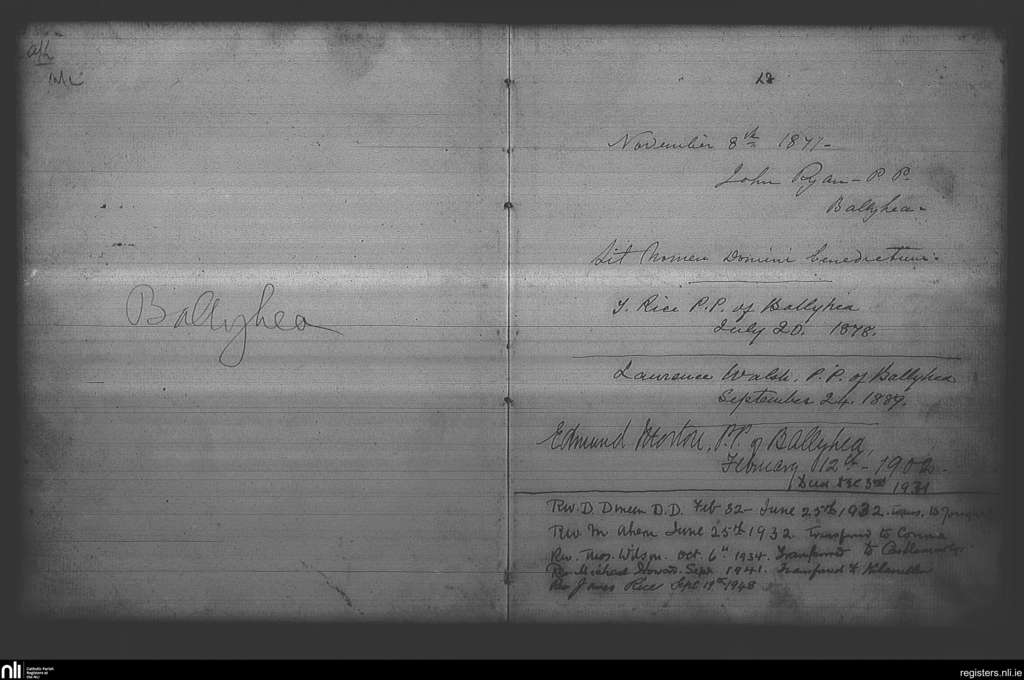 Ballyhea
28
November 8th 1871-
John Ryan - P. P.
Ballyhea-
Sit Nomen Domini benedictum.
T. Rice P.P. of Ballyhea
July 20. 1878.
Laurence Walsh. P.P. of Ballyhea
September 24. 1889.
Edmund Morton, P.P. of Ballyhea,
February 12th - 1902-
Died Dec 3rd 1931
Rev. D. Dineen D.D. Feb 32 - June 25th 1932. trans. to
Rev. M Ahern June 25th 1932. Transferred to Conna
Rev. Thos. Wilson. Oct. 6th 1934. Transferred to
Rev Michael Sept 1941. Transferred to
Rev James Rice Sept 1948
nli
Catholic Parish
Registers at
the NLI
registers.nli.ie